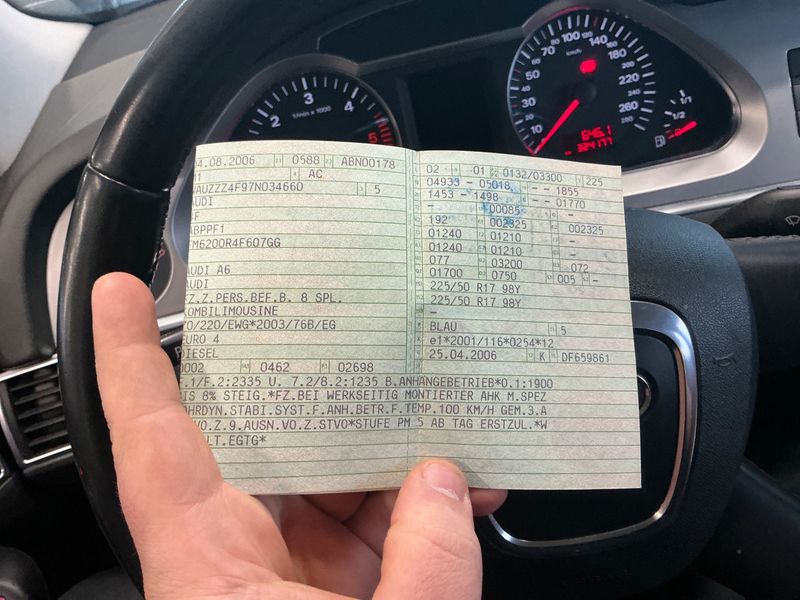 04.08.2006 0588 ABN00178
AC
WAUZZZ4F97N034660 5
AUDI
ABPPF1
FM6200R4F607GG
AUDI A6
AUDI
FZ.Z.PERS.BEF.B. 8 SPL.
KOMBILIMOUSINE
70/220/EWG*2003/76B/EG
EURO 4
DIESEL
0002 0462 02698
02 01 0132/03300 225
04933 - 05018 - - 1855
1453 - 1498 - - 01770
- 00085 -
192 002325 002325
01240 01210
01240 01210
077 03200 072
01700 0750 005 -
225/50 R17 98Y
225/50 R17 98Y
-
BLAU 5
e1*2001/116*0254*12
25.04.2006 K DF659861
F.1/F.2:2335 U. 7.2/8.2:1235 B.ANHÄNGEBETRIEB*O.1:1900
BIS 8% STEIG.*FZ.BEI WERKSEITIG MONTIERTER AHK M.SPEZ
FAHRDYN.STABI.SYST.F.ANH.BETR.F.TEMP.100 KM/H GEM.3.A
VO.Z.9.AUSN.VO.Z.STVO*STUFE PM 5 AB TAG ERSTZUL.*W
LT.EGTG*
2 3 4 5
1/min x 1000
10 30 50 70 100 140 180 220 260
km/h
646.1
324177
1/1
1/2